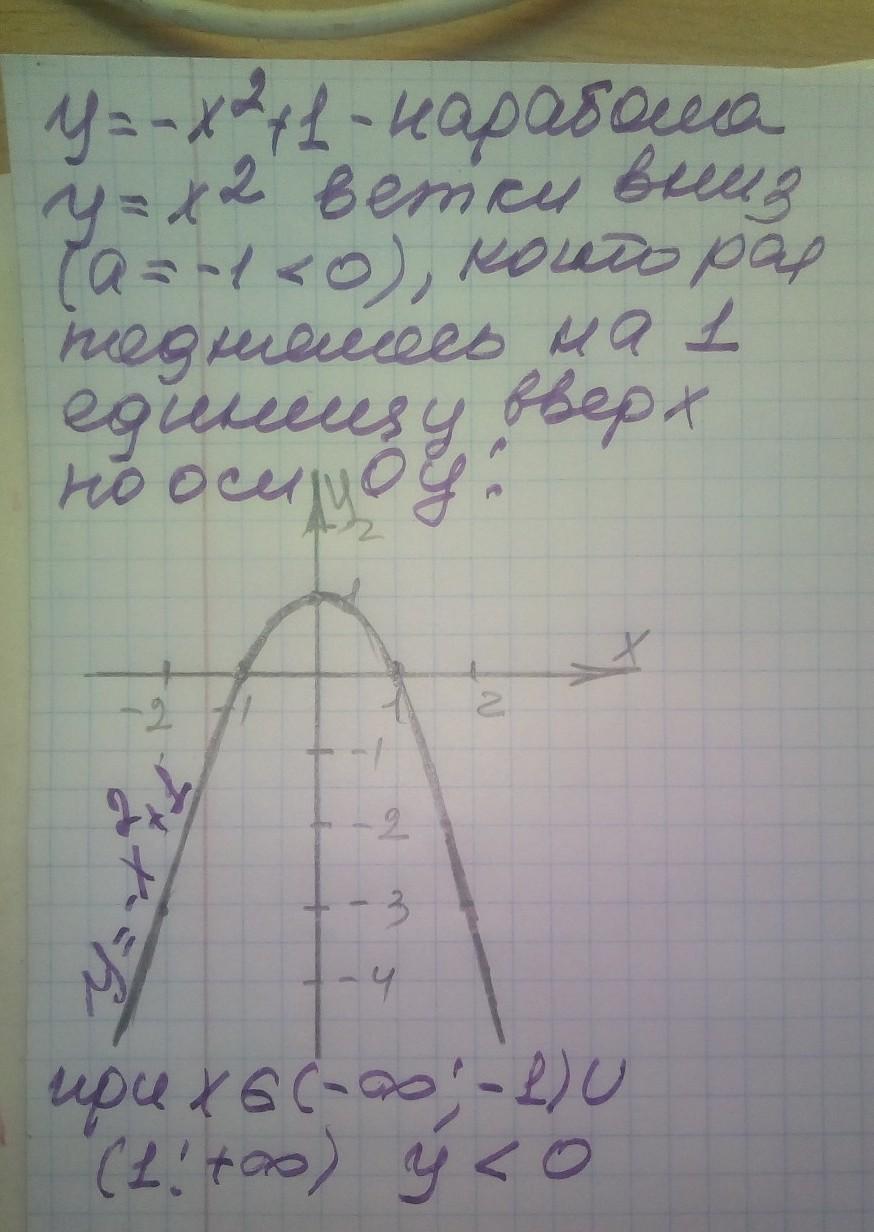 y = -x² + 1 - парабола
y = x² ветки вниз
(a = -1 < 0), которая
поднялась на 1
единицу вверх
по оси Oy:
y
1
x
-2 -1 1 2
-1
-2
-3
-4
y = -x² + 1
при x ∈ (-∞; -1) ∪
(1; +∞) y < 0